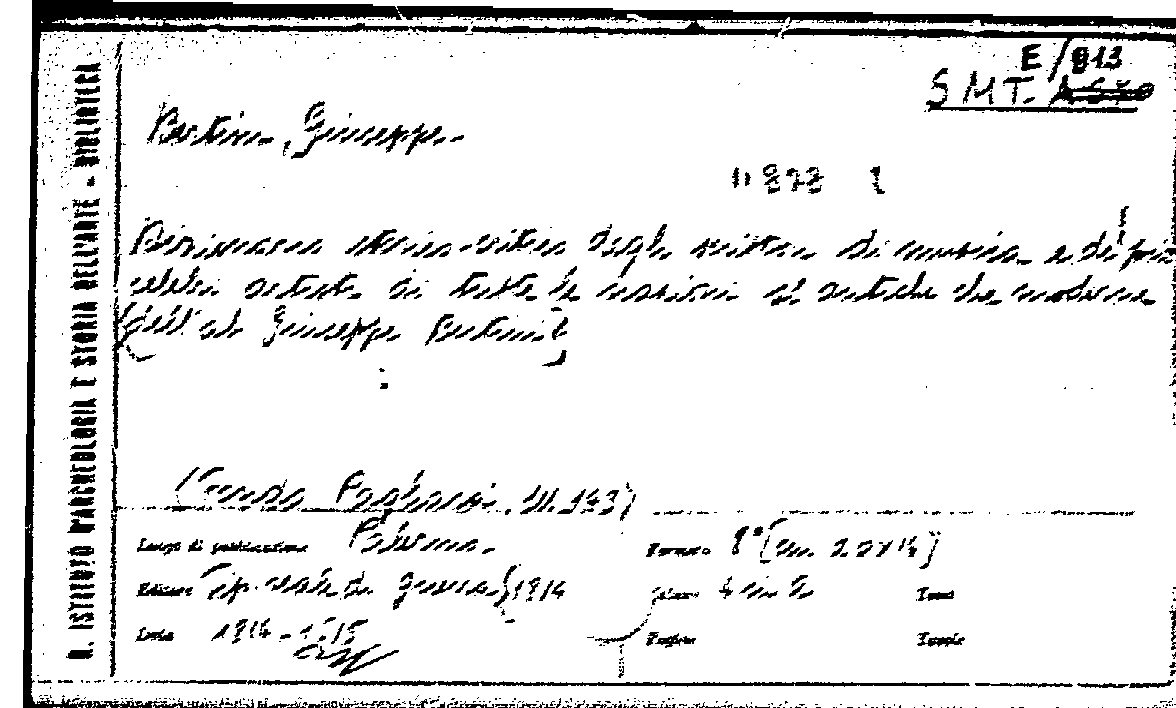 E/813
S.M.T.
Bertini, Giuseppe
11878
Dizionario storico-critico degli scrittori di musica e de' più
celebri artisti di tutte le nazioni sì antiche che moderne
dell'ab Giuseppe Bertini
(Fondo Pagliara III.143)
Luogo di pubblicazione Palermo
Formato 8° [cm. 22x16]
Editore Tip. reale di guerra 1814
Volumi 4 in 2
Tomi
Data 1814-1815
Pagine
Tavole
R. ISTITUTO D'ARCHEOLOGIA E STORIA DELL'ARTE - BIBLIOTECA